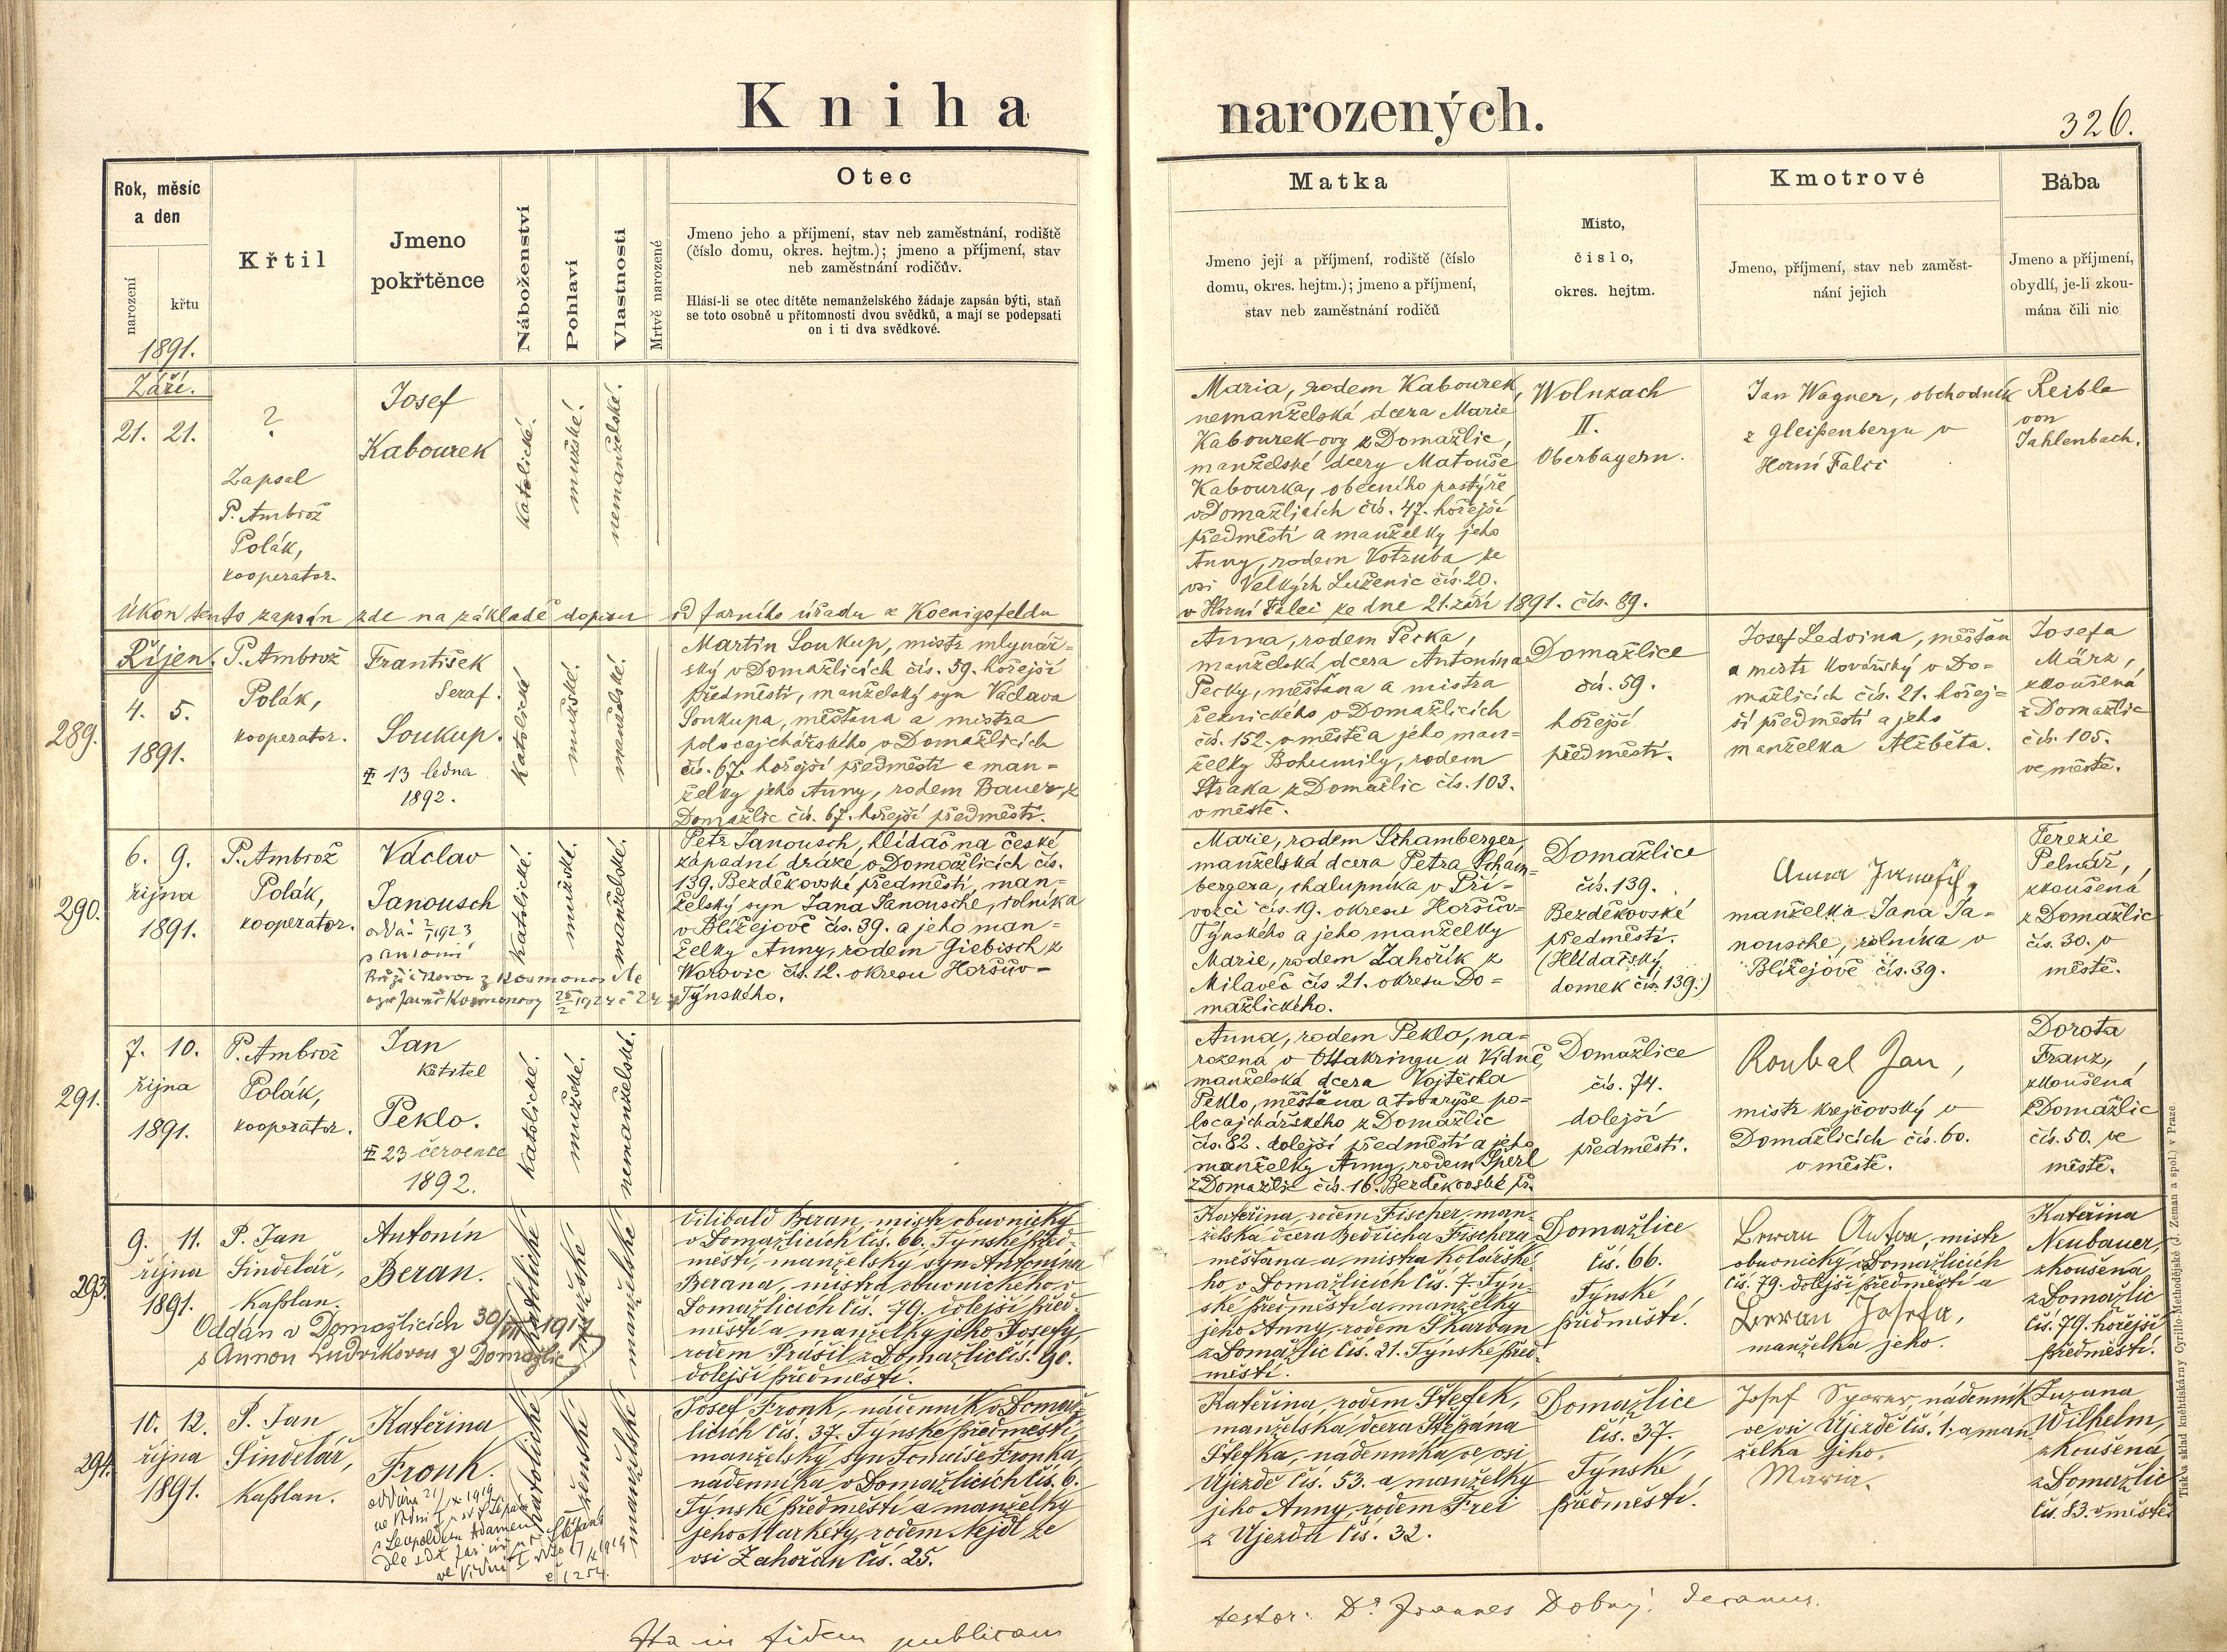 Kniha narozených.
326.
Rok, měsíc
a den
narození
křtu
1891.
Křtil
Jmeno
pokřtěnce
Náboženství
Pohlaví
Vlastnosti
Mrtvě narozené
Otec
Jmeno jeho a příjmení, stav neb zaměstnání, rodiště
(číslo domu, okres. hejtm.); jmeno a příjmení, stav
neb zaměstnání rodičův.
Hlásí-li se otec dítěte nemanželského žádaje zapsán býti, staň
se toto osobně u přítomnosti dvou svědků, a mají se podepsati
on i ti dva svědkové.
Matka
Jmeno její a příjmení, rodiště (číslo
domu, okres. hejtm.); jmeno a příjmení,
stav neb zaměstnání rodičů
Místo,
číslo,
okres. hejtm.
Kmotrové
Jmeno, příjmení, stav neb zaměst-
nání jejich
Bába
Jmeno a příjmení,
obydlí, je-li zkou-
mána čili nic
Září.
21. 21.
?
Zapsal
P. Ambrož
Polák,
kooperator.
Josef
Kabourek
Katolické.
mužské.
nemanželské.
Maria, rodem Kabourek,
nemanželská dcera Marie
Kabourek-ovy z Domažlic,
manželské dcery Matouše
Kabourka, obecního pastýře
v Domažlicích čís. 47. hořejší
předměstí a manželky jeho
Anny, rodem Votruba ze
vsi Velkých Luženic čís. 20.
Wolnzach
II.
Oberbayern.
Jan Wagner, obchodník
z Gleißenbergu v
Horní Falci
Reible
von
Jahlenbach.
Úkon tento zapsán zde na základě dopisu od farního úřadu z Koenigsfeldu
v Horní Falci ze dne 21. září 1891. čís. 89.
289.
Říjen.
4. 5.
1891.
P. Ambrož
Polák,
kooperator.
František
Seraf.
Soukup.
13 ledna
1892.
Katolické
mužské.
manželské.
Martin Soukup, mistr mlynář-
ský v Domažlicích čís. 59. hořejší
předměstí, manželský syn Václava
Soukupa, měšťana a mistra
polocajchářského v Domažlicích
čís. 67. hořejší předměstí a man-
želky jeho Anny, rodem Bauer z
Domažlic čís. 67. hořejší předměstí.
Anna, rodem Pecka,
manželská dcera Antonína
Pecky, měšťana a mistra
řeznického v Domažlicích
čís. 152. v městě a jeho man-
želky Bohumily, rodem
Straka z Domažlic čís. 103.
v městě.
Domažlice
čís. 59.
hořejší
předměstí.
Josef Ledvina, měšťan
a mistr kovářský v Do-
mažlicích čís. 21. hořej-
ší předměstí a jeho
manželka Alžběta.
Josefa
März,
zkoušená
z Domažlic
čís. 105.
ve městě.
290.
6. 9.
října
1891.
P. Ambrož
Polák,
kooperator.
Václav
Janousch
Katolické.
mužské.
manželské.
Petr Janousch, hlídač na české
západní dráze, v Domažlicích čís.
139. Bezděkovské předměstí, man-
želský syn Jana Janousche, rolníka
v Blížejově čís. 39. a jeho man-
želky Anny, rodem Giebisch z
Worovic čís. 12. okresu Horšův-
Týnského.
Marie, rodem Schamberger,
manželská dcera Petra Scham-
bergera, chalupníka v Pří-
vozci čís. 19. okresu Horšův-
Týnského a jeho manželky
Marie, rodem Zahořík z
Milavčí čís 21. okresu Do-
mažlického.
Domažlice
čís. 139.
Bezděkovské
předměstí.
(Hlídařský
domek čís. 139.)
Anna
manželka Jana Ja-
nousche, rolníka v
Blížejově čís. 39.
Terezie
Pelnář,
zkoušená
z Domažlic
čís. 30. v
městě.
291.
7. 10.
října
1891.
P. Ambrož
Polák,
kooperator.
Jan
Křtitel
Peklo.
23 července
1892.
Katolické.
mužské.
nemanželské.
Anna, rodem Peklo, na-
rozená v Ottakringu u Vídně,
manželská dcera Vojtěcha
Peklo, měšťana a tovaryše po-
locajchářského z Domažlic
čís. 82. dolejší předměstí a jeho
manželky Anny, rodem Šperl
z Domažlic čís. 16. Bezděkovské př.
Domažlice
čís. 74.
dolejší
předměstí.
Roubal Jan,
mistr krejčovský v
Domažlicích čís. 60.
v městě.
Dorota
Franz,
zkoušená
z Domažlic
čís. 50. ve
městě.
293.
9. 11.
října
1891.
P. Jan
Šindelář,
kaplan.
Antonín
Beran.
Oddán v Domažlicích 30/VII 1917
s Annou Ludvíkovou z Domažlic
katolické
mužské
manželské
Vilibald Beran, mistr obuvnický
v Domažlicích čís. 66. Týnské před-
městí, manželský syn Antonína
Berana, mistra obuvnického v
Domažlicích čís. 79. dolejší před-
městí a manželky jeho Josefy,
rodem Prášil z Domažlic čís. 90.
dolejší předměstí.
Kateřina, rodem Fischer, man-
želská dcera Bedřicha Fischera
měšťana a mistra kolářské-
ho v Domažlicích čís. 7. Týn-
ské předměstí a manželky
jeho Anny, rodem Skarvan
z Domažlic čís. 21. Týnské před-
městí.
Domažlice
čís. 66.
Týnské
předměstí.
Beran Anton, mistr
obuvnický v Domažlicích
čís. 79. dolejší předměstí a
Beran Josefa,
manželka jeho.
Kateřina
Neubauer,
zkoušená
z Domažlic
čís. 79. hořejší
předměstí.
294.
10. 12.
října
1891.
P. Jan
Šindelář,
kaplan.
Kateřina
Fronk.
katolické
ženské
manželské
Josef Fronk, nádenník v Domaž-
licích čís. 37. Týnské předměstí,
manželský syn Tomáše Fronka,
nádenníka v Domažlicích čís. 6.
Týnské předměstí a manželky
jeho Markéty, rodem Nejdl ze
vsi Zahořan čís. 25.
Kateřina, rodem Štefek,
manželská dcera Štěpána
Štefka, nádenníka ve vsi
Újezdě čís. 53. a manželky
jeho Anny, rodem Frei
z Újezda čís. 32.
Domažlice
čís. 37.
Týnské
předměstí.
Josef Sporer, nádenník
ve vsi Újezdě čís. 1. a man-
želka jeho,
Maria.
Zuzana
Wilhelm,
zkoušená
z Domažlic
čís. 83. v městě.
Ita in fidem publicam
testor: Dr Joannes Dobrý, decanus.
Tisk a sklad knihtiskárny Cyrillo-Methodějské (J. Zeman a spol.) v Praze.